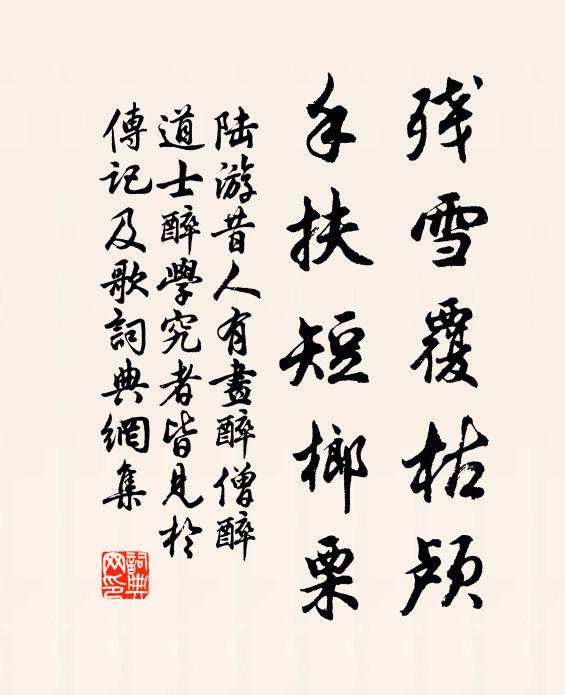 残雪覆枯颅
手扶短榔栗
陆游昔人有畫醉僧醉
道士醉學究者皆見於
傳記及歌詞典網集
詞典网印